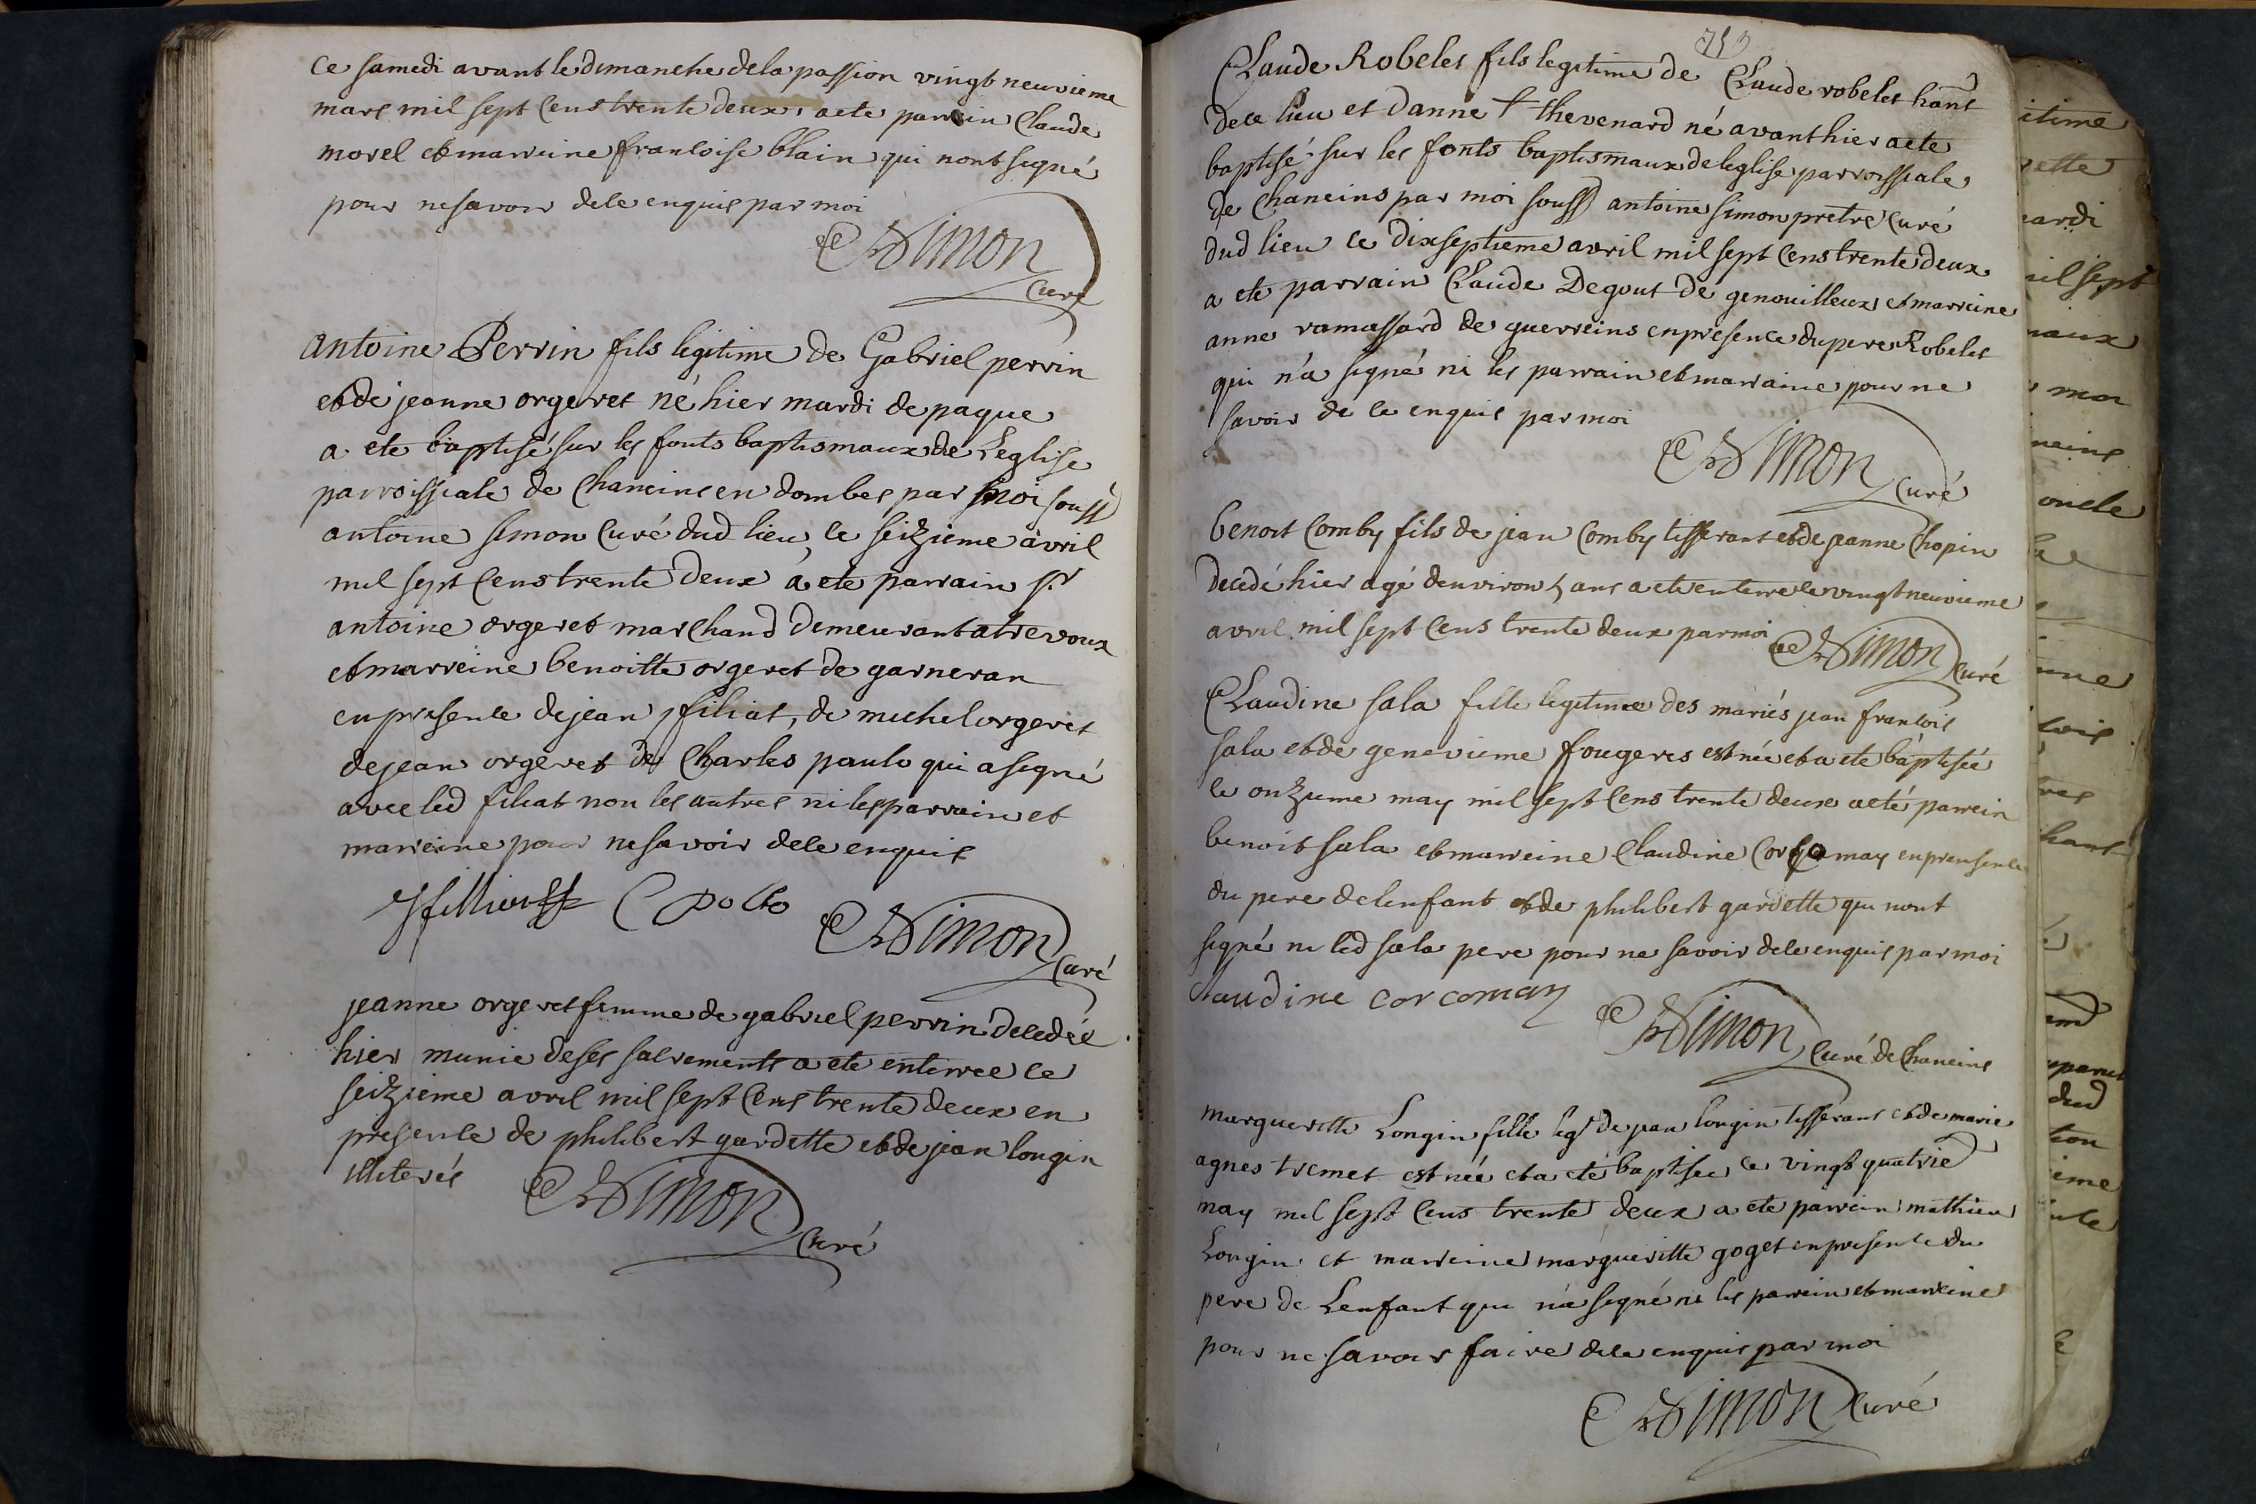 ce samedi avant le dimanche de la passion vingt neuvieme
mars mil sept cens trente deux, a ete parrein Claude
morel et marreine francoise blain qui nont signé
pour ne savoir de ce enquis par moi
Simon
curé
antoine Perrin fils legitime de Gabriel perrin
et de jeanne orgeret né hier mardi de paque
a ete baptisé sur les fonts baptismaux de Leglise
parroissiale de Chaneins en dombes par moi souss
antoine simon Curé dud lieu, ce seizieme avril
mil sept cens trente deux a ete parrain Sr
antoine orgeret marchand demeurant a trevoux
et marreine benoitte orgeret de garneran
en presence de jean filiat, de michel orgeret
de jean orgeret de Charles paulo qui a signé
avec led filiat non les autres ni les parrain et
marreine pour ne savoir de ce enquis
Simon
Curé
jeanne orgeret femme de gabriel perrin decedée
hier munie de ses sacrements a ete enterree ce
seizieme avril mil sept cens trente deux en
presence de philibert gardette et de jean longin
illiterés
Simon
Curé
753
Claude Robelet fils legitime de Claude robelet hant
de ce lieu et danne + thevenard né avant hier a ete
baptisé sur les fonts baptismaux de leglise parroissiale
de Chaneins par moi souss antoine simon pretre Curé
dud lieu ce dixseptieme avril mil sept cens trente deux
a ete parrain Claude Degout de genouilleux et marreine
anne ramassard de guerreins en presence du pere Robelet
qui n'a signé ni les parrain et marraine pour ne
savoir de ce enquis par moi
Simon
Curé
benoit Comby fils de jean Comby tisserant et de jeanne Chopin
decedé hier agé denviron 5 ans a ete enterre ce vingt neuvieme
avril mil sept cens trente deux par moi Simon Curé
Claudine sala fille legitime des mariés jean francois
sala et de genevieme fougeres est née et a ete baptisée
le onzieme may mil sept cens trente deux a eté parrein
benoit sala et marreine Claudine Corcomay en presence
du pere de lenfant et de philibert gardette qui nont
signé ni led sala pere pour ne savoir de ce enquis par moi
claudine corcomay
Simon
Curé de Chaneins
margueritte Longin fille legt de jean longin tisserant et de marie
agnes tremet est née et a eté baptisee ce vingt quatrie
may mil sept cens trente deux a ete parrein mathieu
Longin et marreine marguerite goget en presence du
pere de Lenfant qui n'a signé ni les parrein et marreine
pour ne savoir faire de ce enquis par moi
Simon Curé